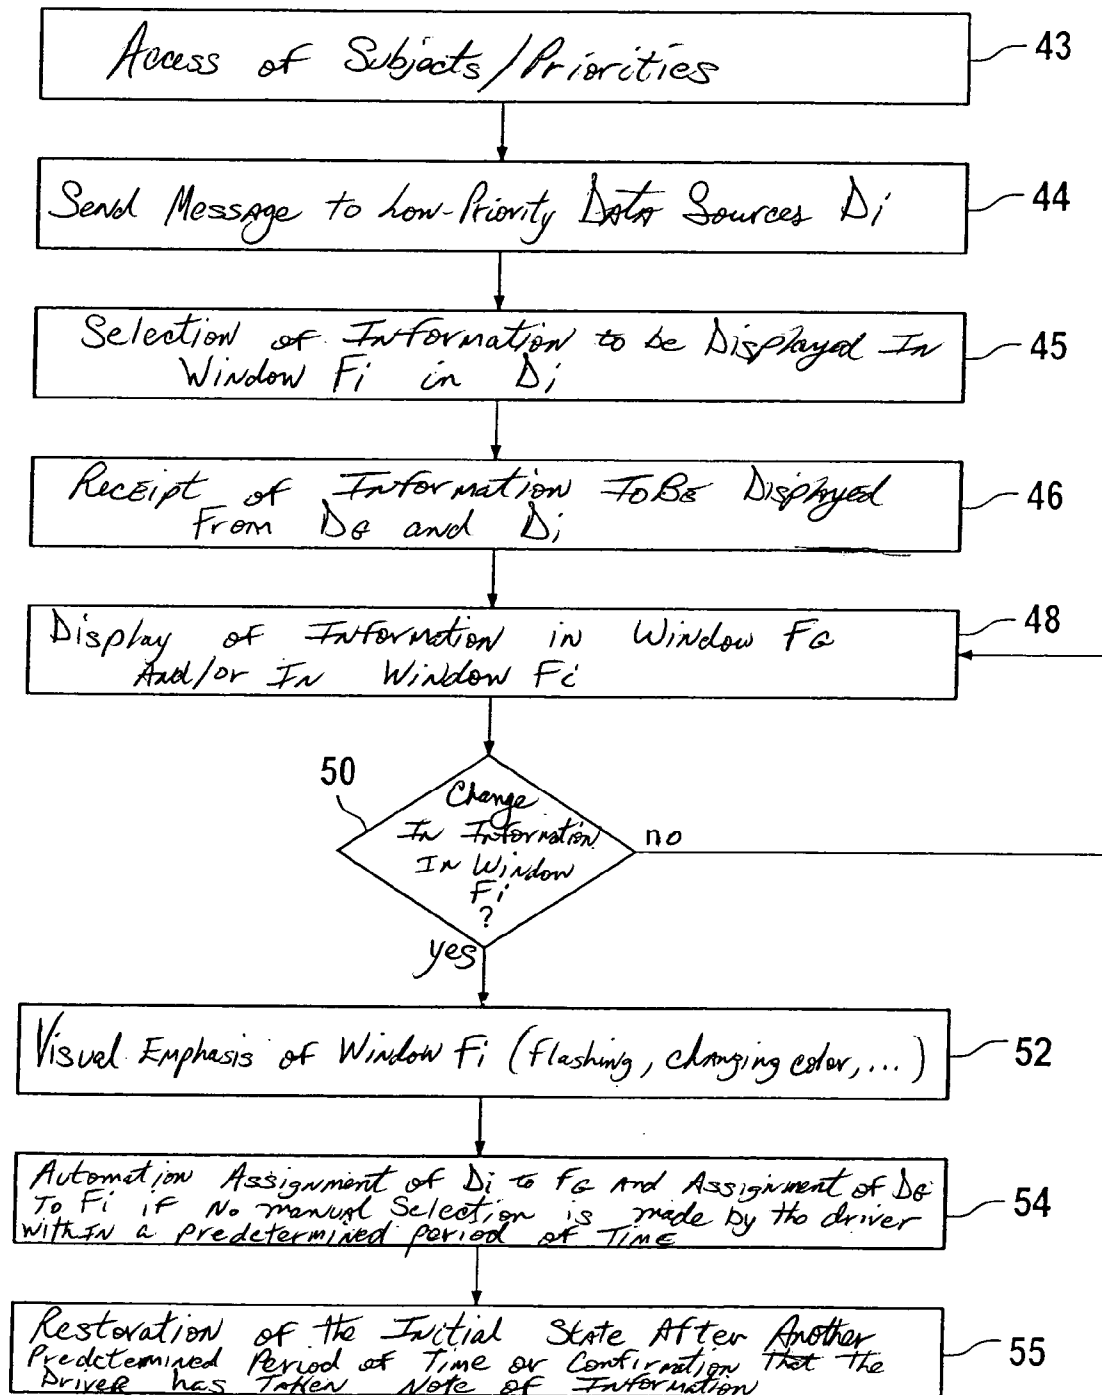 Access of Subjects/Priorities
43
Send Message to Low-Priority Data Sources Di
44
Selection of Information to be Displayed In
Window Fi in Di
45
Receipt of Information To Be Displayed
From DG and Di
46
Display of Information in Window FG
And/or In Window Fi
48
50
Change
In Information
In Window
Fi
?
no
yes
Visual Emphasis of Window Fi (flashing, changing color, ...)
52
Automation Assignment of Di to FG And Assignment of DG
To Fi if No manual Selection is made by the driver
within a predetermined period of Time
54
Restoration of the Initial State After Another
Predetermined Period of Time or Confirmation That the
Driver has Taken Note of Information
55